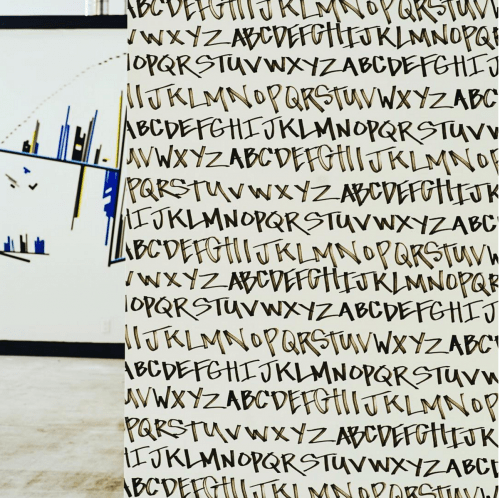 ABCDEFGHIIJKLMNOPQRSTUVV
VWXYZABCDEFGHIJKLMNOPQR
OPQRSTUVWXYZABCDEFGHIJ
IIJKLMNOPQRSTUVVWXYZABC
ABCDEFGHIJKLMNOPQRSTUVV
VVWXYZABCDEFGHIIJKLMNOP
PQRSTUVVWXYZABCDEFGHIIJK
IJKLMNOPQRSTUVWXYZABC
ABCDEFGHIIJKLMNOPQRSTUVV
VWXYZABCDEFGHIIJKLMNOPQR
OPQRSTUVWXYZABCDEFGHIJ
IIJKLMNOPQRSTUVVWXYZABC
ABCDEFGHIJKLMNOPQRSTUVV
VVWXYZABCDEFGHIIJKLMNOP
PQRSTUVVWXYZABCDEFGHIIJK
IJKLMNOPQRSTUVWXYZABC
ABCDEFGHIIJKLMNOPQRSTUVV